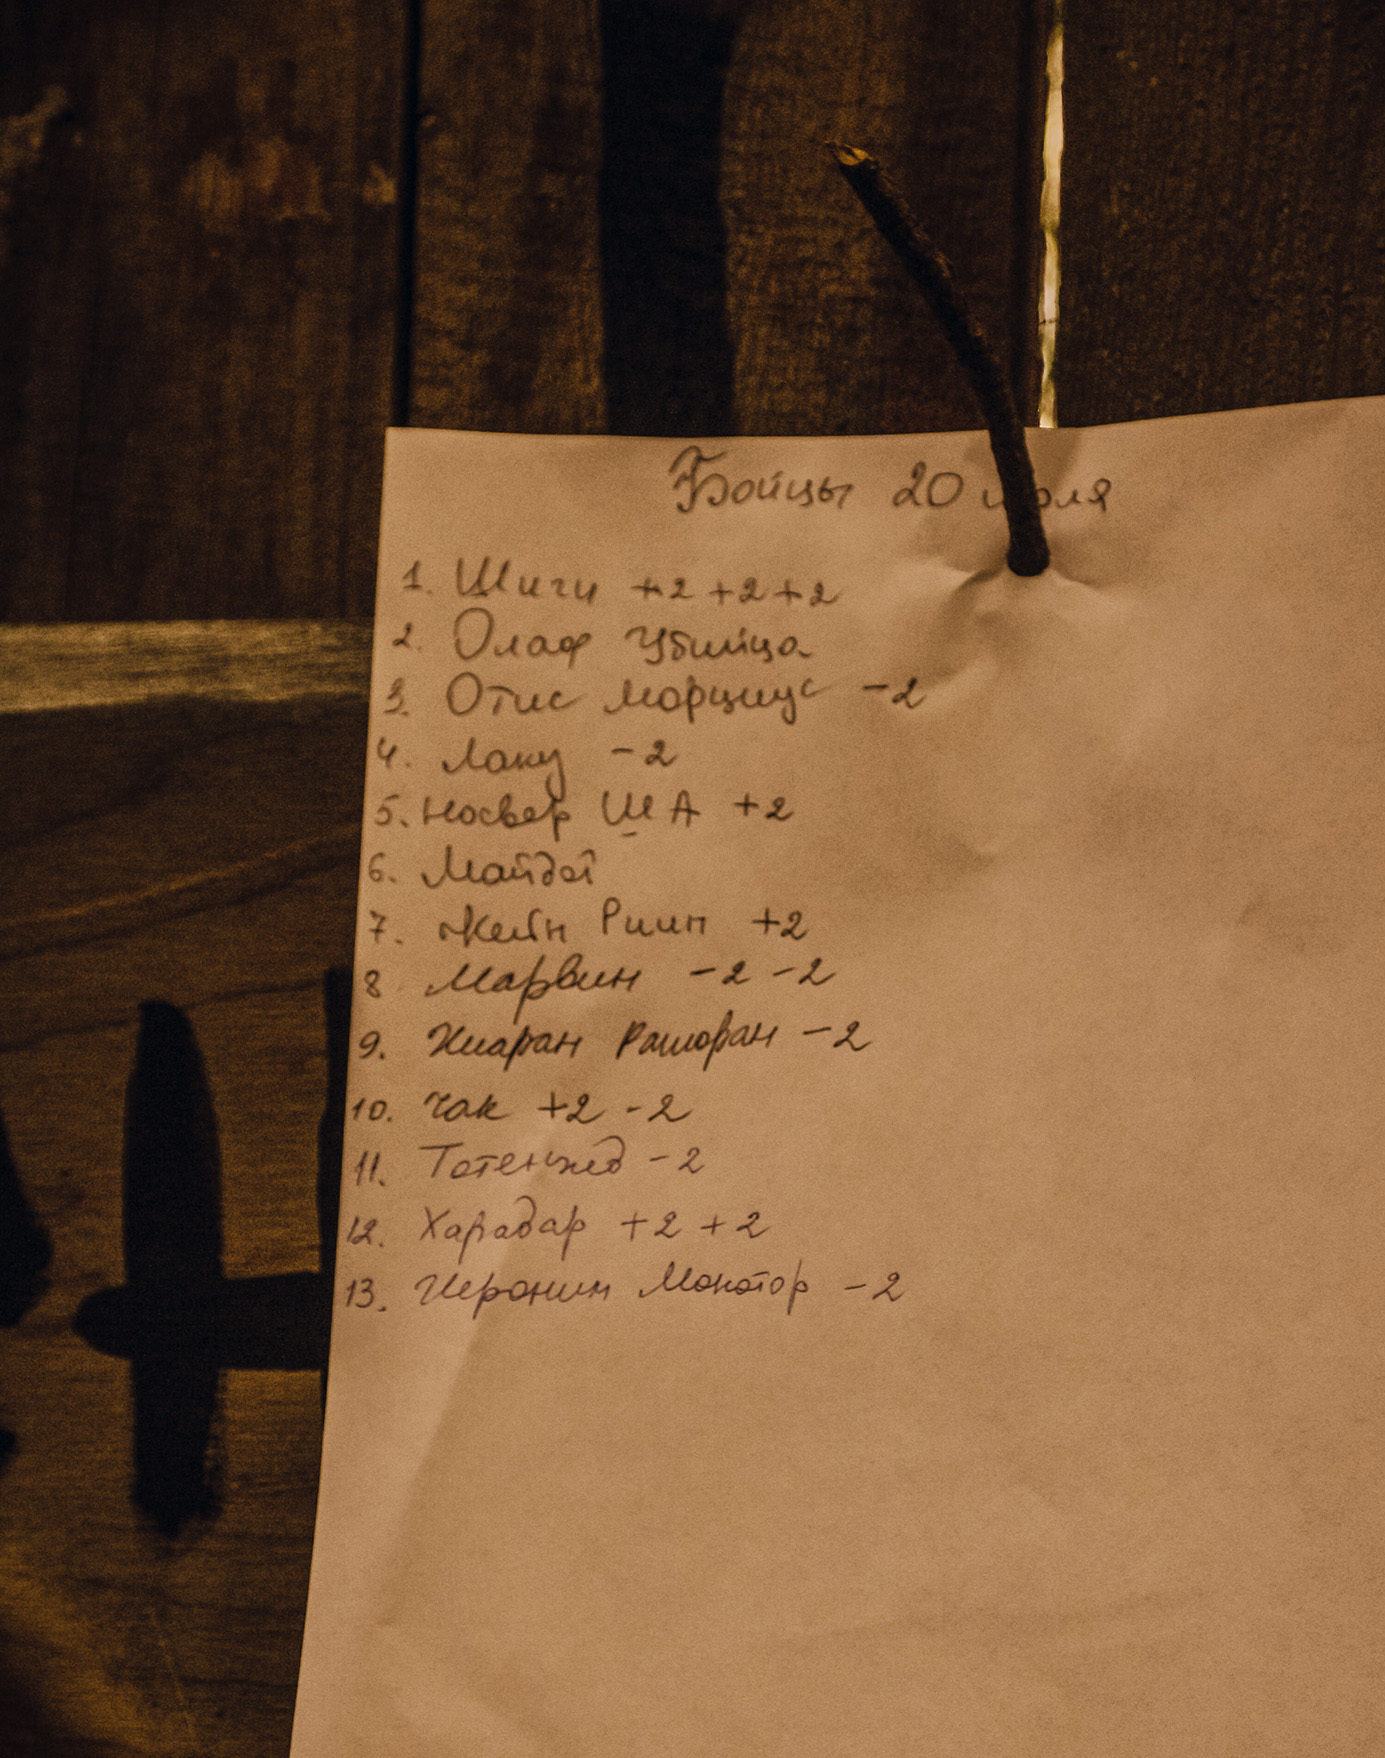 Бойцы 20 июля
1. Шиги +2 +2 +2
2. Олаф Убийца
3. Отис Марциус -2
4. Лаку -2
5. Носвер ША +2
6. Майдой
7. Жейн Риин +2
8 Марвин -2 -2
9. Киаран -2
10. Чак +2 -2
11. -2
12. Харадар +2 +2
13. Иероним Монотор -2